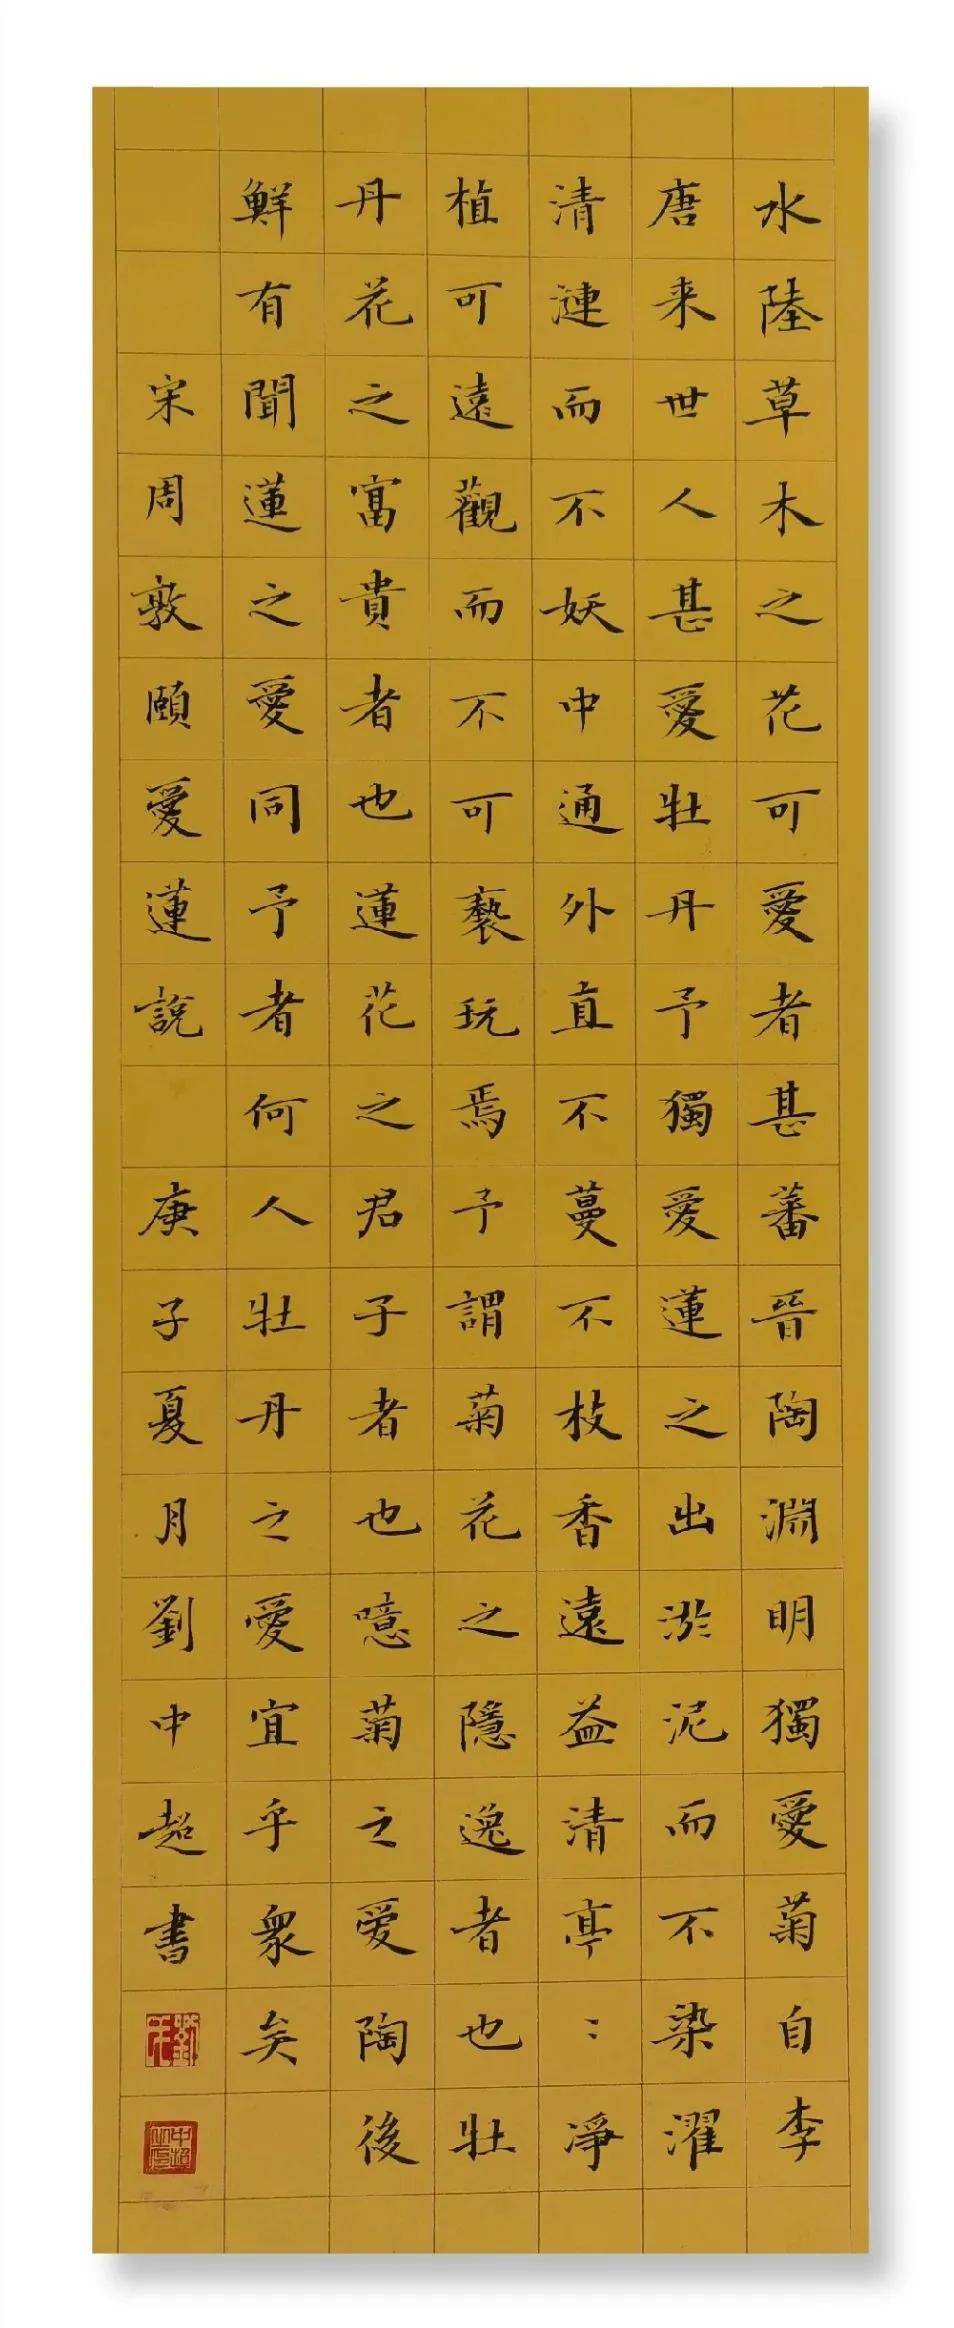 水陸草木之花可愛者甚蕃晉陶淵明獨愛菊自李
唐来世人甚愛牡丹予獨愛蓮之出淤泥而不染濯
清漣而不妖中通外直不蔓不枝香遠益清亭〻淨
植可遠觀而不可褻玩焉予謂菊花之隱逸者也牡
丹花之富貴者也蓮花之君子者也噫菊之愛陶後
鮮有聞蓮之愛同予者何人牡丹之愛宜乎衆矣
宋周敦頤愛蓮說 庚子夏月劉中超書